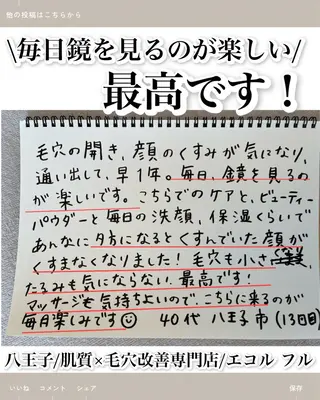 他の投稿はこちらから
\毎日鏡を見るのが楽しい/
最高です！
毛穴の開き、顔のくすみが気になり、
通い出して、早1年。毎日、鏡を見るの
が楽しいです。こちらでのケアと、ビューティー
パウダーと毎日の洗顔、保湿くらいで
あんなに夕方になるとくすんでいた顔が
くすまなくなりました！毛穴も小さく
たるみも気にならない。最高です！
マッサージも気持ちよいので、こちらに来るのが
毎月楽しみです☺ 40代 八王子市(13回目)
八王子/肌質×毛穴改善専門店/エコル フル
いいね コメント シェア 保存